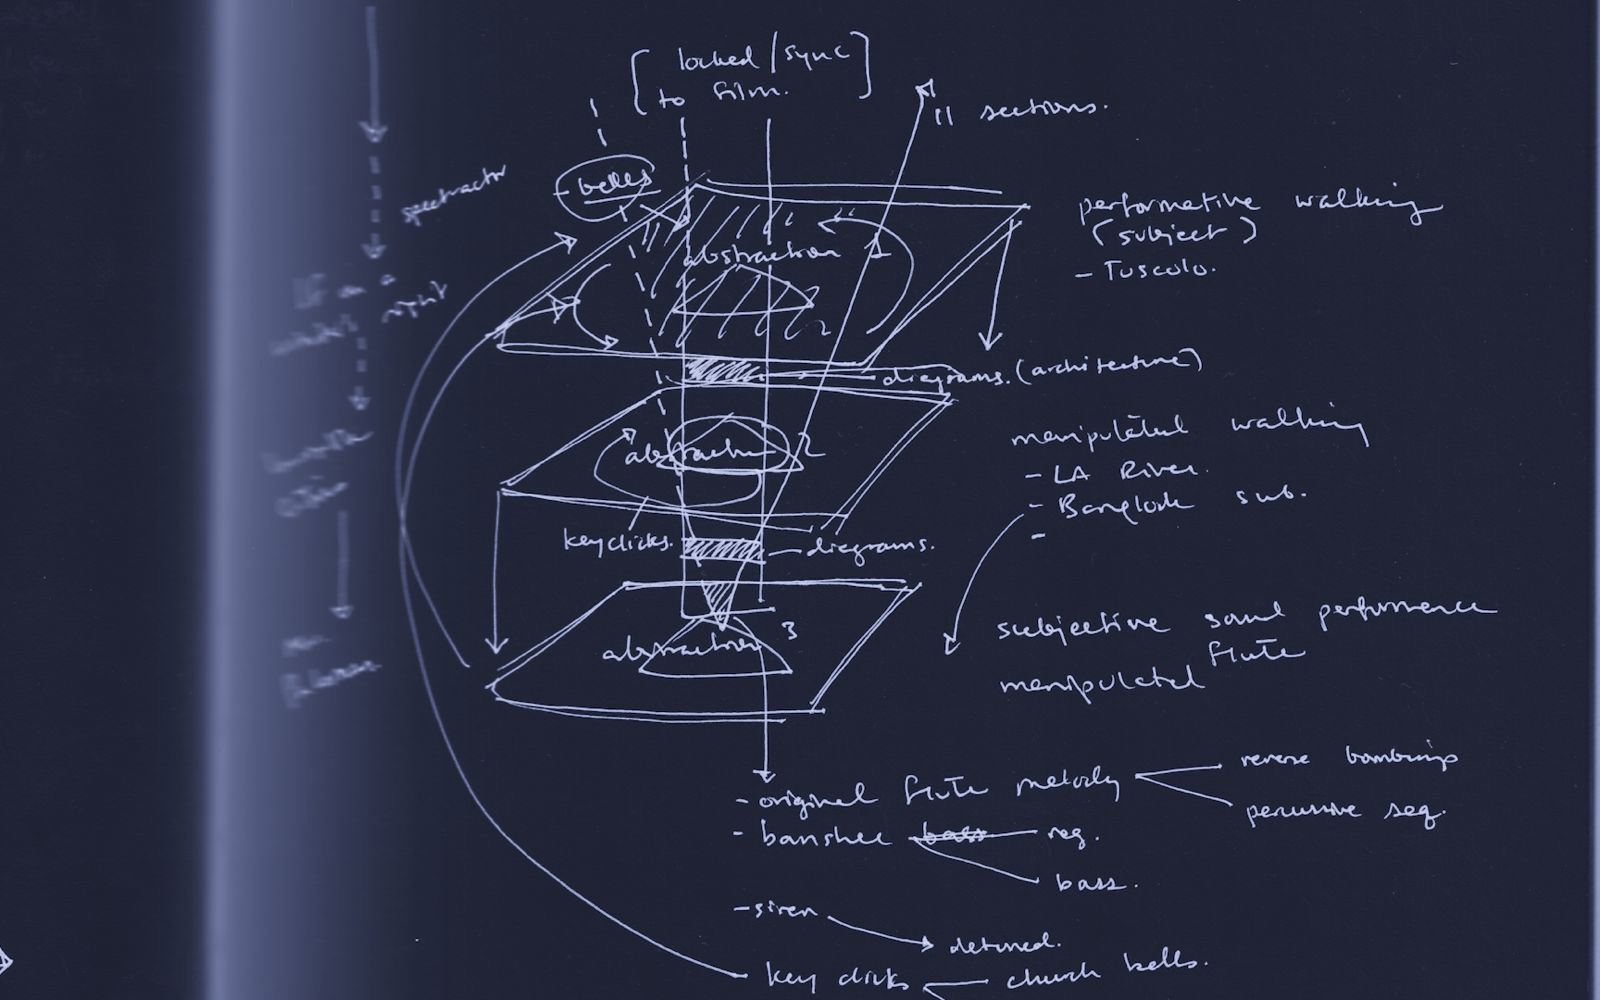 [ locked/sync ]
to film.
11 sections.
- bells
performative walking
(subject)
- Tuscolo.
abstraction 1
night
diagrams. (architecture)
manipulated walking
- LA River.
- sub.
-
abstraction 2
key clicks.
- diagrams.
abstraction 3
subjective sound performance
flute
manipulated
- original flute melody
reverse
percussive seq.
- banshee bass reg.
bass.
- siren
detuned.
key clicks
church bells.